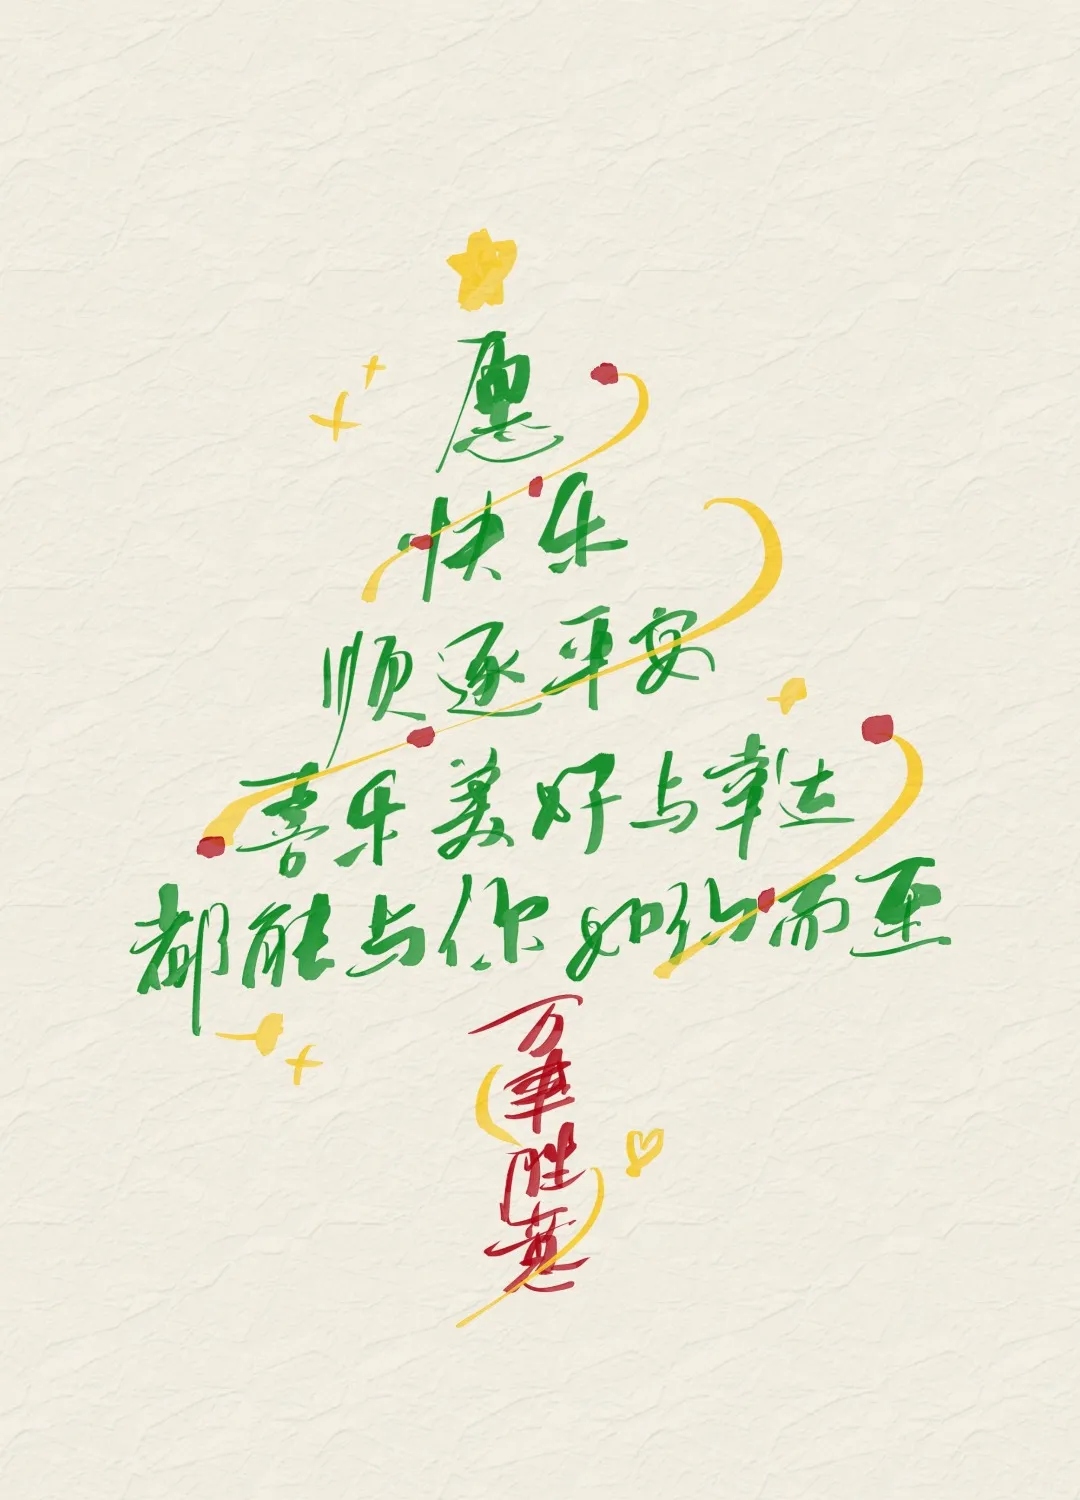 愿
快乐
顺遂平安
喜乐美好与幸运
都能与你如约而至
万
事
胜
意